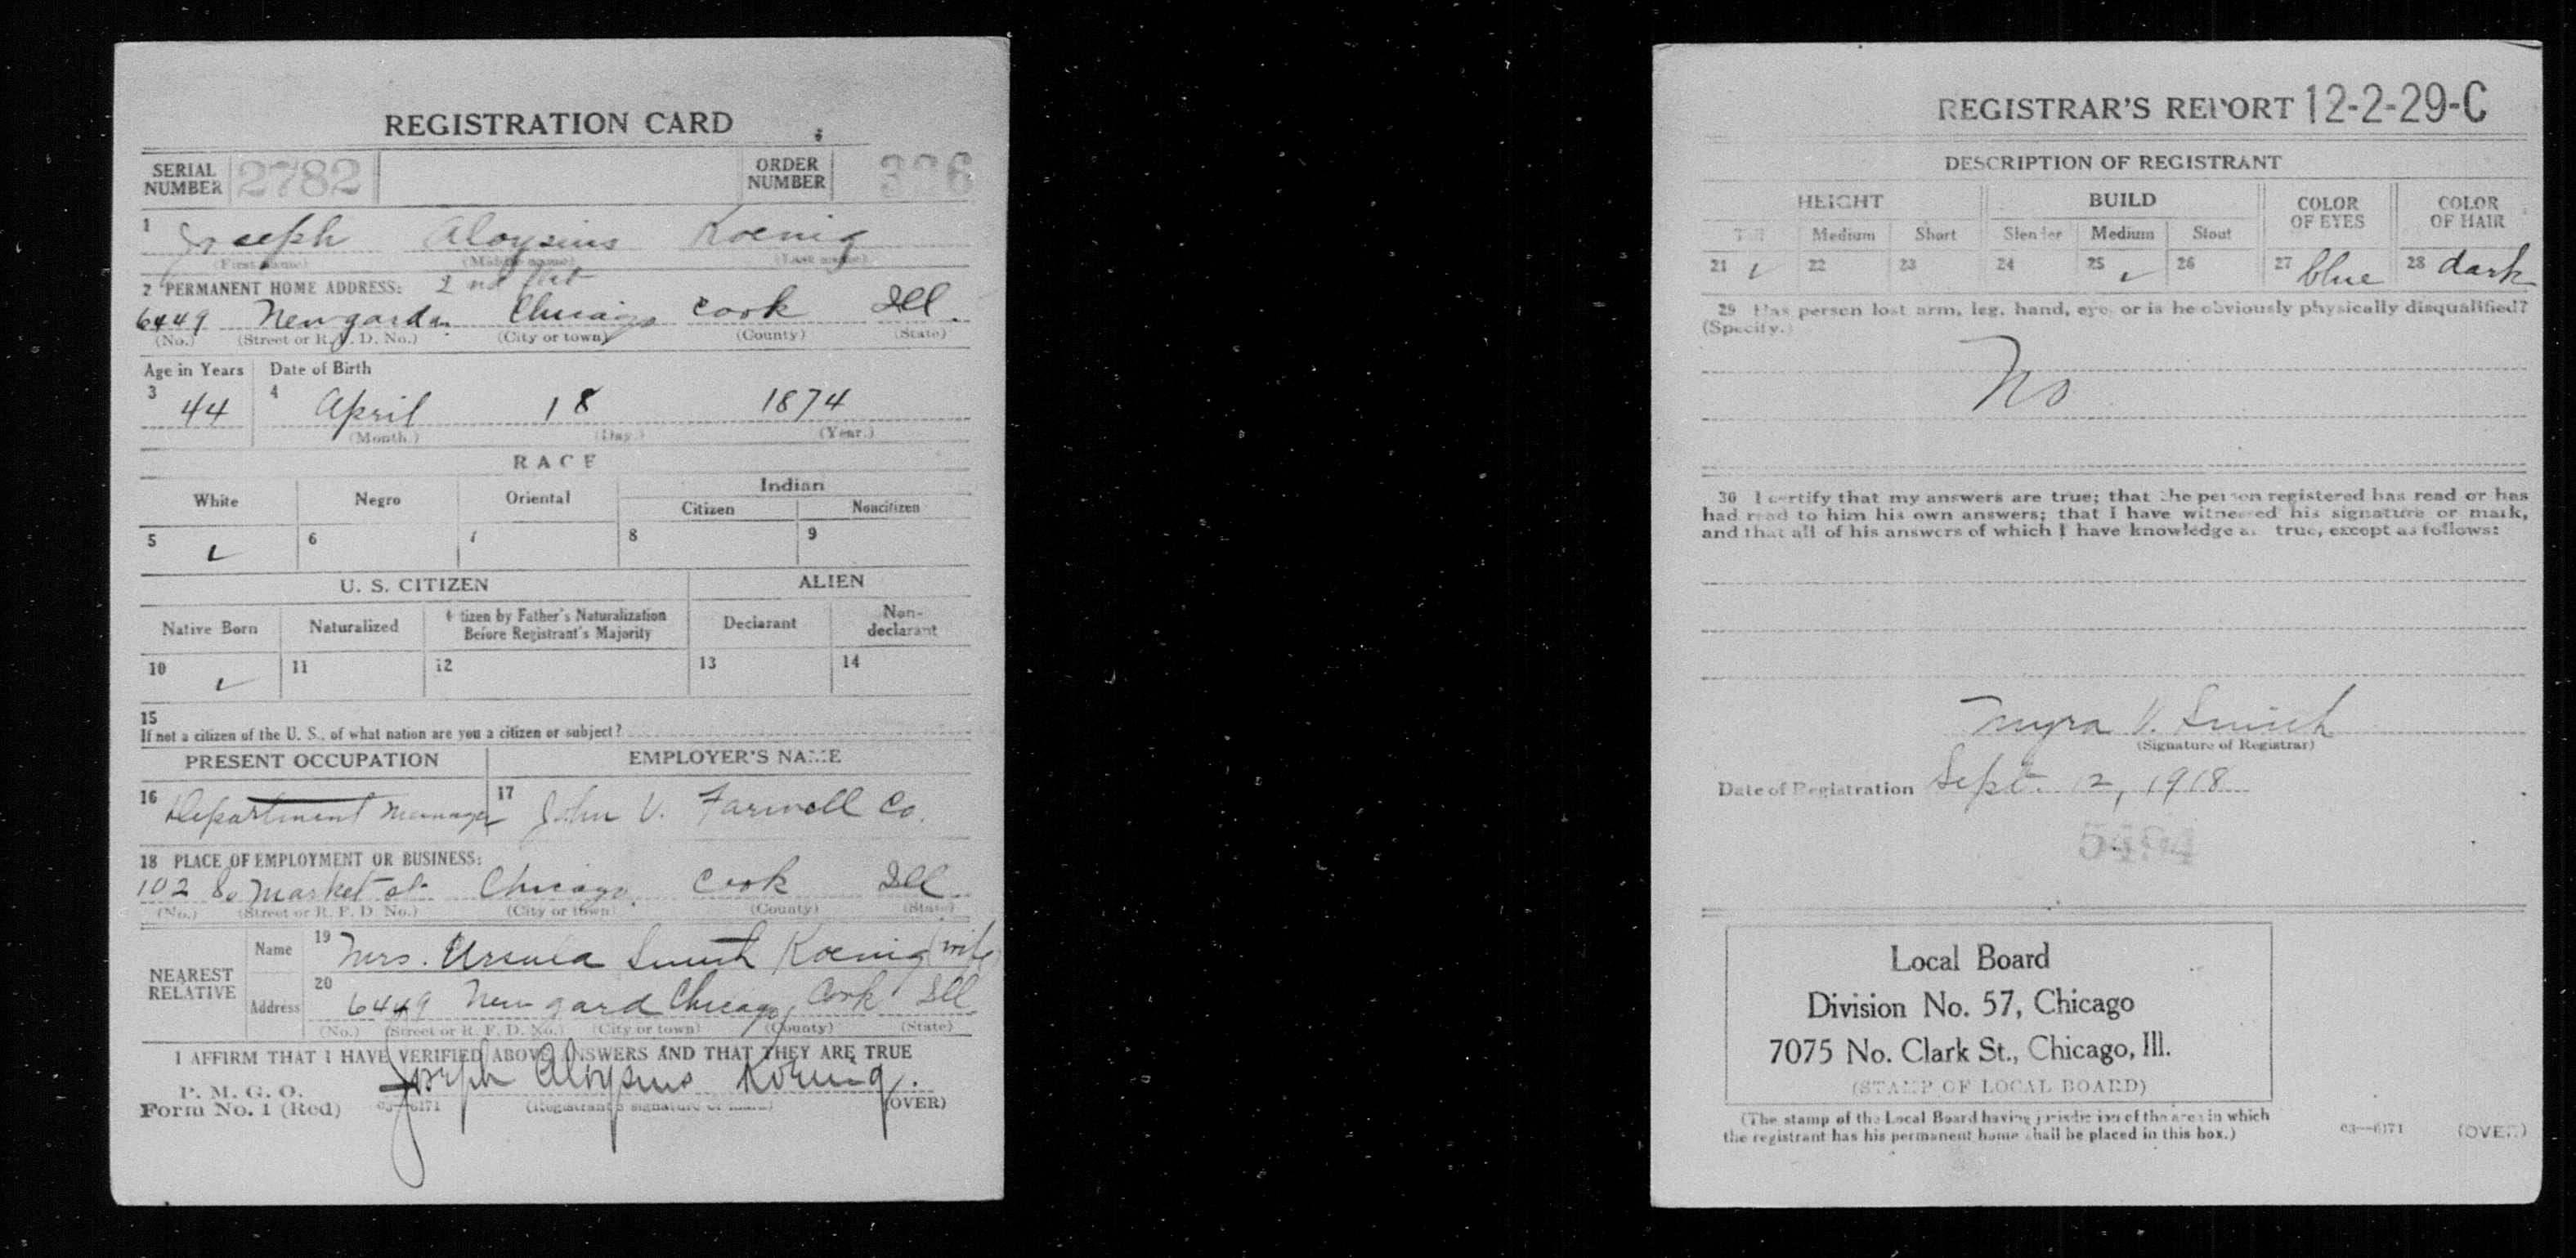 REGISTRATION CARD
SERIAL NUMBER 2782 ORDER NUMBER
1 Joseph Aloysius Koenig
(First name) (Middle name) (Last name)
2 PERMANENT HOME ADDRESS: 2nd flat
6449 Newgard Chicago Cook Ill.
(No.) (Street or R. F. D. No.) (City or town) (County) (State)
Age in Years Date of Birth
3 44 4 April 18 1874
(Month.) (Day.) (Year.)
RACE
White Negro Oriental Indian
Citizen Noncitizen
5 ✓ 6 7 8 9
U. S. CITIZEN ALIEN
Native Born Naturalized Citizen by Father's Naturalization Before Registrant's Majority Declarant Non-declarant
10 ✓ 11 12 13 14
15
If not a citizen of the U. S., of what nation are you a citizen or subject?
PRESENT OCCUPATION EMPLOYER'S NAME
16 Department Manager 17 John V. Farwell Co.
18 PLACE OF EMPLOYMENT OR BUSINESS:
102 So Market st Chicago Cook Ill
(No.) (Street or R. F. D. No.) (City or town) (County) (State)
NEAREST RELATIVE
Name 19 Mrs. Ursula Smith Koenig (wife)
Address 20 6449 Newgard Chicago, Cook Ill
(No.) (Street or R. F. D. No.) (City or town) (County) (State)
I AFFIRM THAT I HAVE VERIFIED ABOVE ANSWERS AND THAT THEY ARE TRUE
P. M. G. O.
Form No. 1 (Red) 03—6171 Joseph Aloysius Koenig.
(Registrant's signature or mark) (OVER)
REGISTRAR'S REPORT 12-2-29-C
DESCRIPTION OF REGISTRANT
HEIGHT BUILD COLOR OF EYES COLOR OF HAIR
Tall Medium Short Slender Medium Stout
21 ✓ 22 23 24 25 ✓ 26 27 blue 28 dark
29 Has person lost arm, leg, hand, eye, or is he obviously physically disqualified?
(Specify.)
No
30 I certify that my answers are true; that the person registered has read or has
had read to him his own answers; that I have witnessed his signature or mark,
and that all of his answers of which I have knowledge are true, except as follows:
Myra V. Smith
(Signature of Registrar)
Date of Registration Sept. 12, 1918
5494
Local Board
Division No. 57, Chicago
7075 No. Clark St., Chicago, Ill.
(STAMP OF LOCAL BOARD)
(The stamp of the Local Board having jurisdiction of the area in which
the registrant has his permanent home shall be placed in this box.)
03—6171 (OVER)